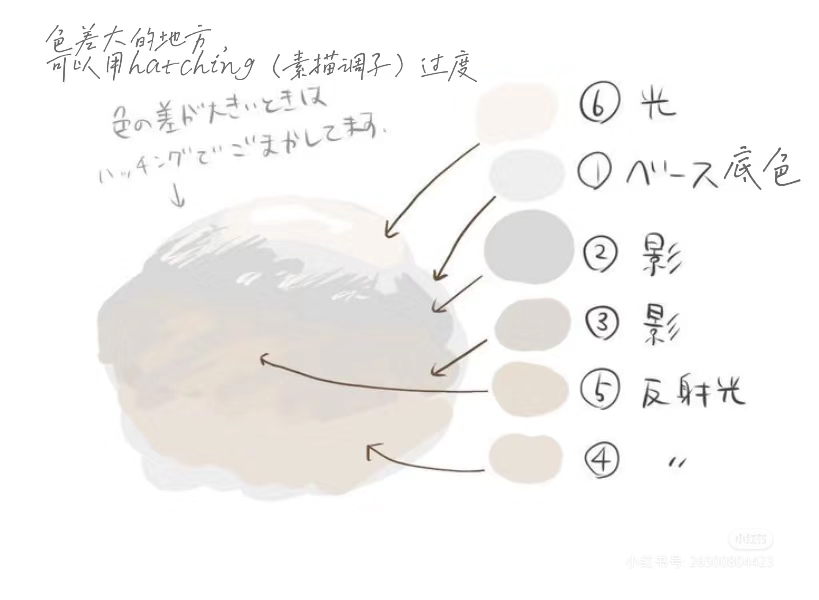 色差大的地方,
可以用hatching（素描调子）过度
色の差が大きいときは
ハッチングでごまかしてます.
⑥ 光
① ベース底色
② 影
③ 影
⑤ 反射光
④ 〃
小红书
小红书号: 26500804423